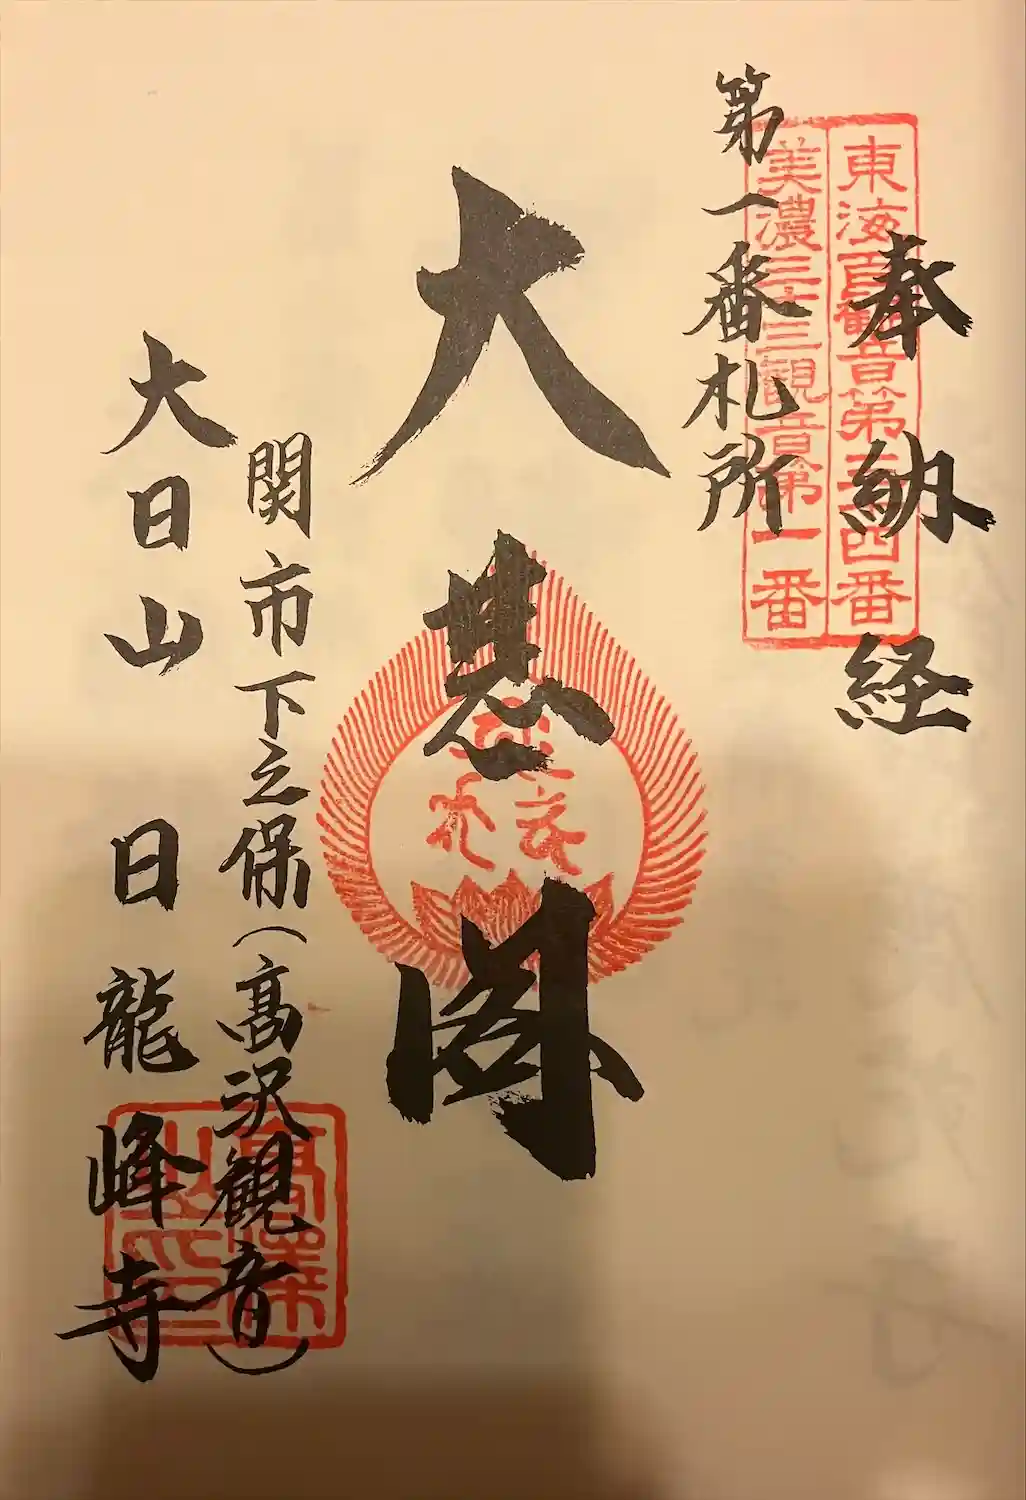 奉納経
東海百観音第三十四番
美濃三十三観音第一番
第一番札所
大悲閣
関市下之保(髙沢観音)
大日山 日龍峰寺